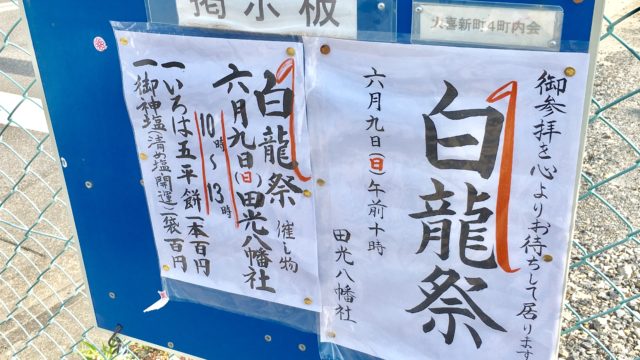 掲示板
大喜新町4町内会
御参拝を心よりお待ちして居ります
白龍祭
六月九日(日)午前十時
田光八幡社
白龍祭 催し物
六月九日(日)田光八幡社
10時～13時
一いろは五平餅一本百円
一御神塩(清め塩開運)一袋百円